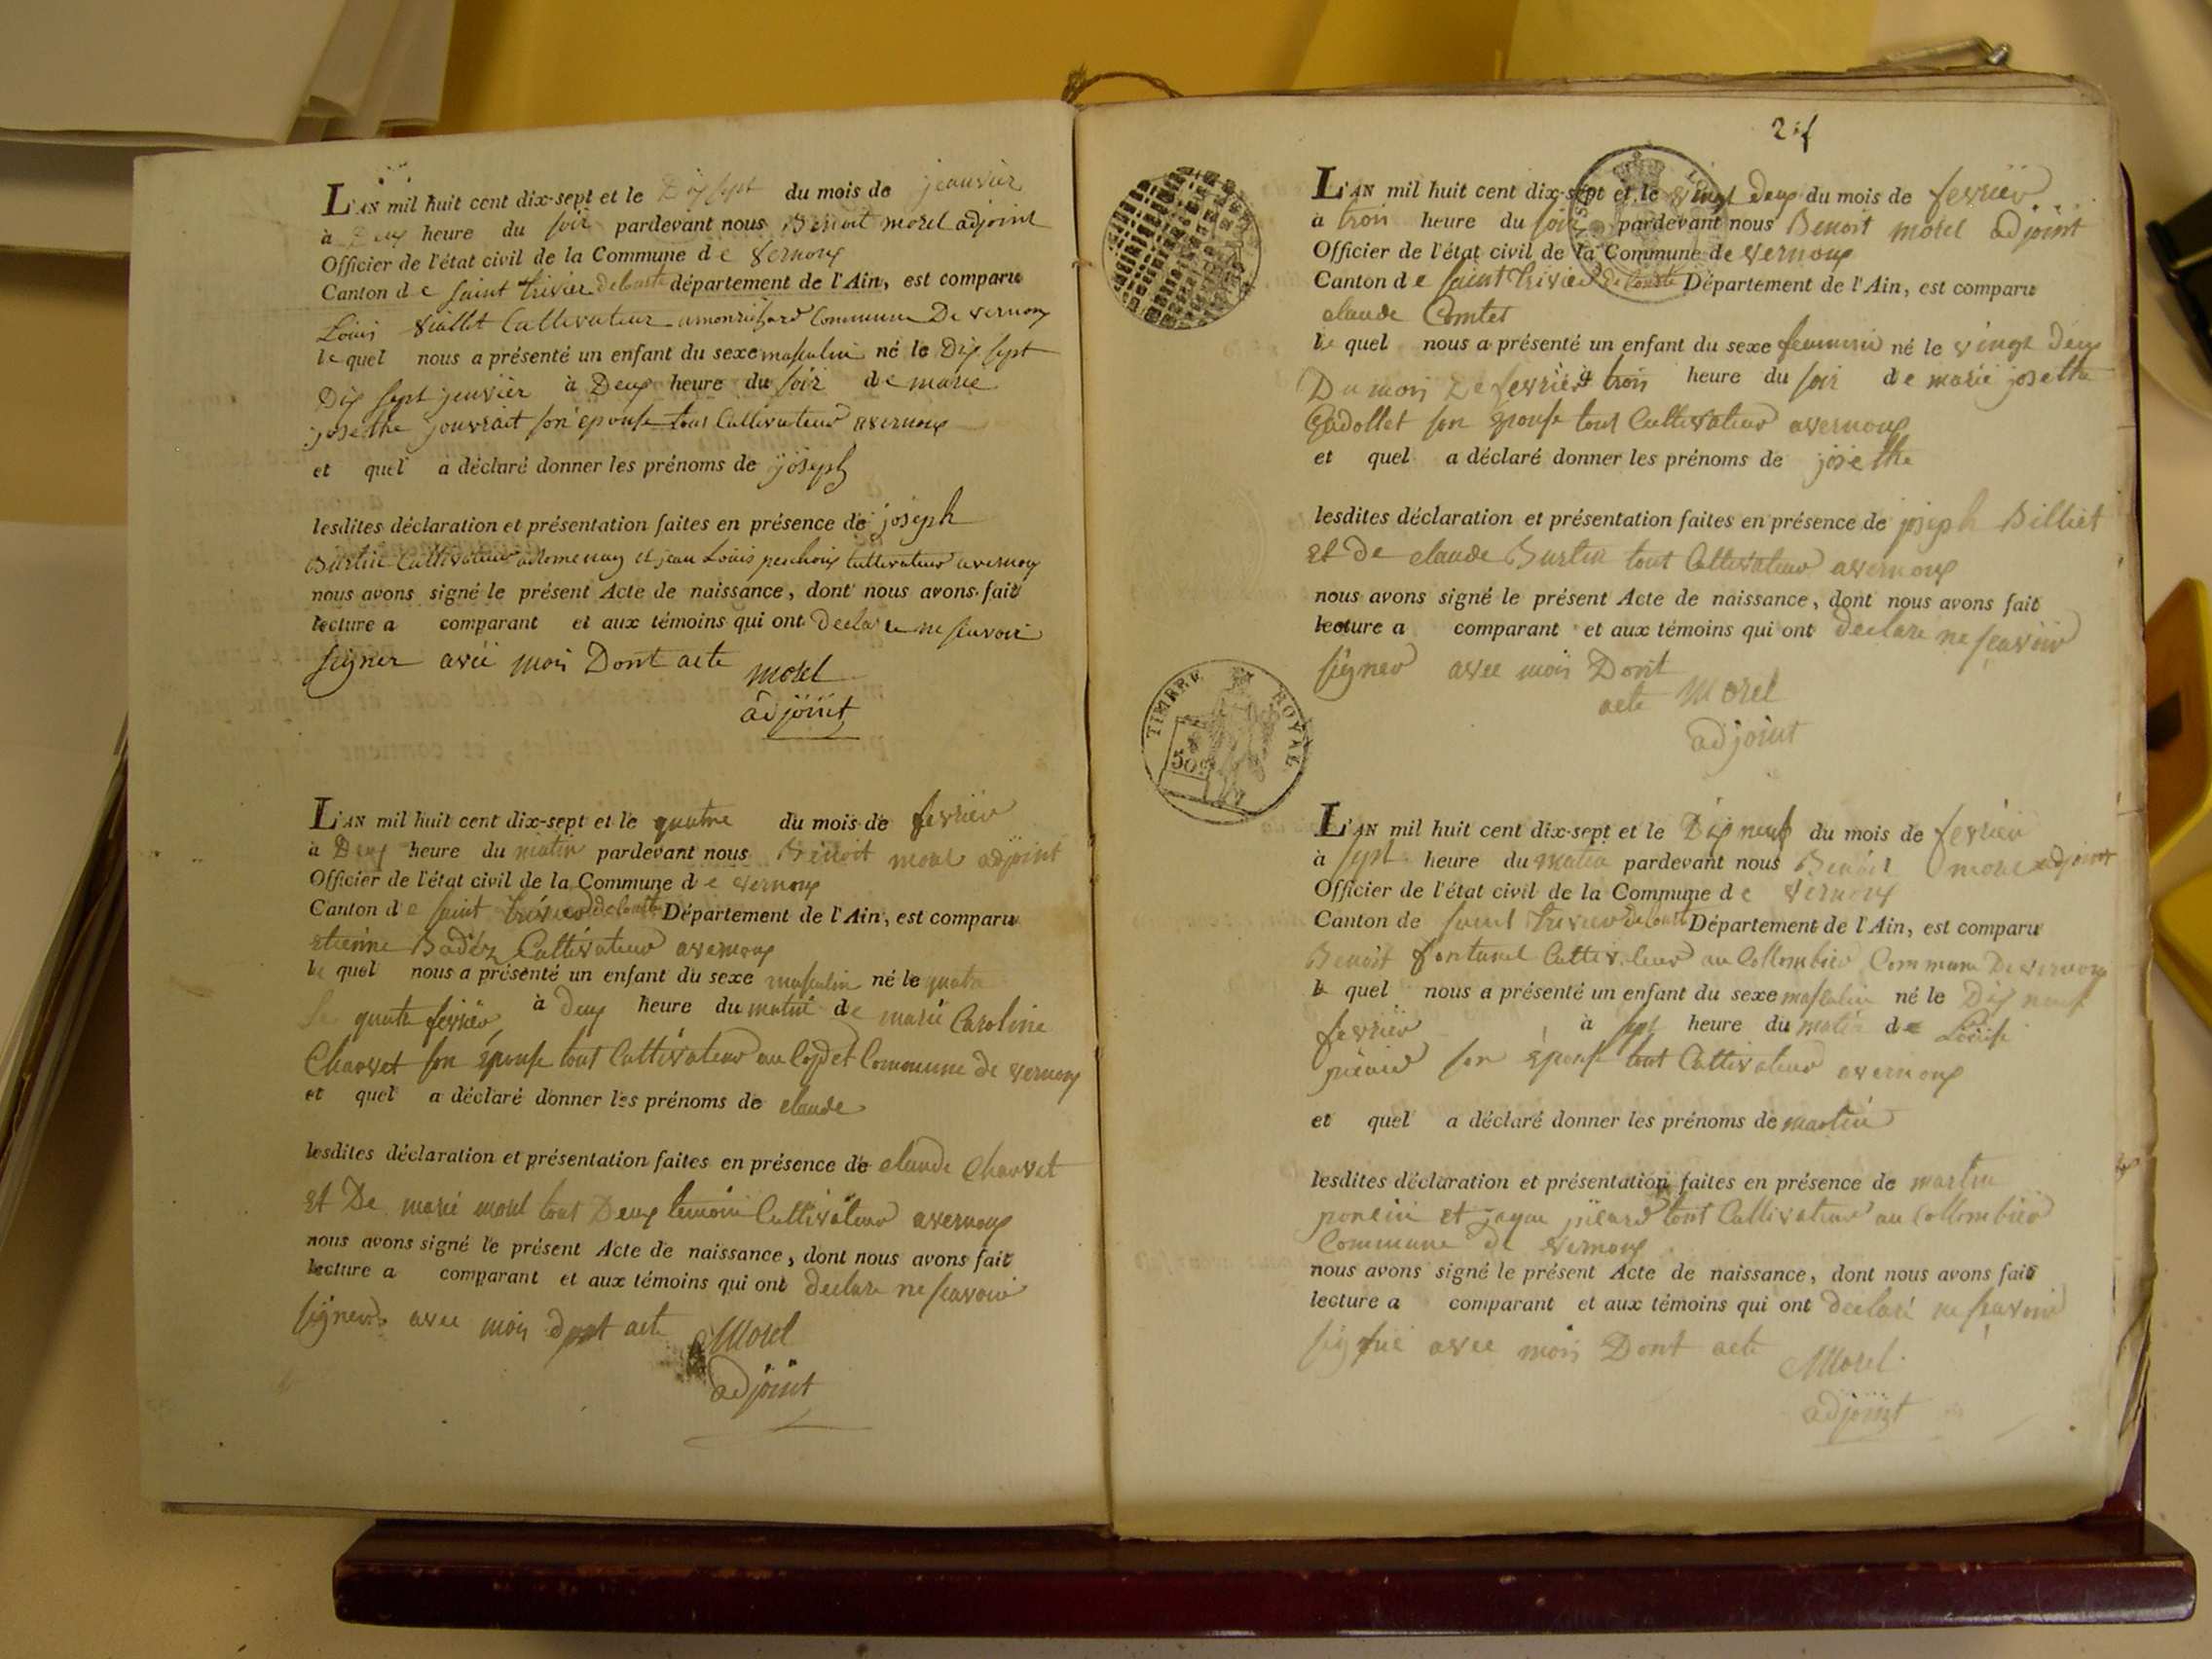 L'AN mil huit cent dix-sept et le Dix sept du mois de jeanvier
à Deux heure du soir pardevant nous Benoit morel adjoint
Officier de l'état civil de la Commune de vernoux
Canton de saint trivier decourte département de l'Ain, est comparu
Louis viallet Cultivateur amonrichard Commune De vernoux
le quel nous a présenté un enfant du sexe masculin né le Dix sept
Dix sept jenvier à Deux heure du soir de marie
josethe jouvrait son epouse tous Cultivateur avernoux
et quel a déclaré donner les prénoms de joseph
lesdites déclaration et présentation faites en présence de joseph
Burtin Cultivateur et jean Louis Cultivateur avernoux
nous avons signé le présent Acte de naissance, dont nous avons fait
lecture a comparant et aux témoins qui ont Declare ne scavoir
signer avec mois Dont acte morel
adjoint
L'AN mil huit cent dix-sept et le quatre du mois de fevrier
à Deux heure du matin pardevant nous Benoit morel adjoint
Officier de l'état civil de la Commune de vernoux
Canton de saint trivier decourte Département de l'Ain, est comparu
etienne Badéz Cultivateur avernoux
le quel nous a présenté un enfant du sexe masculin né le quatre
le quatre fevrier à deux heure du matin de marie Caroline
Charvet son épouse tout Cultivateur au Commune de vernoux
et quel a déclaré donner les prénoms de claude
lesdites déclaration et présentation faites en présence de claude Charvet
et De marie morel tout Deux temoin Cultivateur avernoux
nous avons signé le présent Acte de naissance, dont nous avons fait
lecture a comparant et aux témoins qui ont declare ne scavoir
signer avec mois dont acte Morel
adjoint
2.f
L'AN mil huit cent dix-sept et le vingt Deux du mois de fevrier
à trois heure du soir pardevant nous Benoit morel adjoint
Officier de l'état civil de la Commune de vernoux
Canton de saint trivier de Courte Département de l'Ain, est comparu
claude Comtet
le quel nous a présenté un enfant du sexe feminin né le vingt Deux
Du mois De fevrier à trois heure du soir de marie josethe
Gadollet son épouse tout Cultivateur avernoux
et quel a déclaré donner les prénoms de josethe
lesdites déclaration et présentation faites en présence de joseph Billiet
et De claude Burtin tout Cultivateur avernoux
nous avons signé le présent Acte de naissance, dont nous avons fait
lecture a comparant et aux témoins qui ont declare ne scavoir
signer avec mois Dont
acte Morel
adjoint
TIMBRE ROYAL
50c
L'AN mil huit cent dix-sept et le Dix neuf du mois de fevrier
à sept heure du matin pardevant nous Benoit morel adjoint
Officier de l'état civil de la Commune de vernoux
Canton de saint trivier de Courte Département de l'Ain, est comparu
Benoit fontanel Cultivateur au Collombier Commune De vernoux
le quel nous a présenté un enfant du sexe masculin né le Dix neuf
fevrier à sept heure du matin de Louise
son épouse tout Cultivateur avernoux
et quel a déclaré donner les prénoms de martin
lesdites déclaration et présentation faites en présence de martin
poncin et tout Cultivateur au Collombier
Commune de vernoux
nous avons signé le présent Acte de naissance, dont nous avons fait
lecture a comparant et aux témoins qui ont declaré ne scavoir
avec mois Dont acte Morel
adjoint